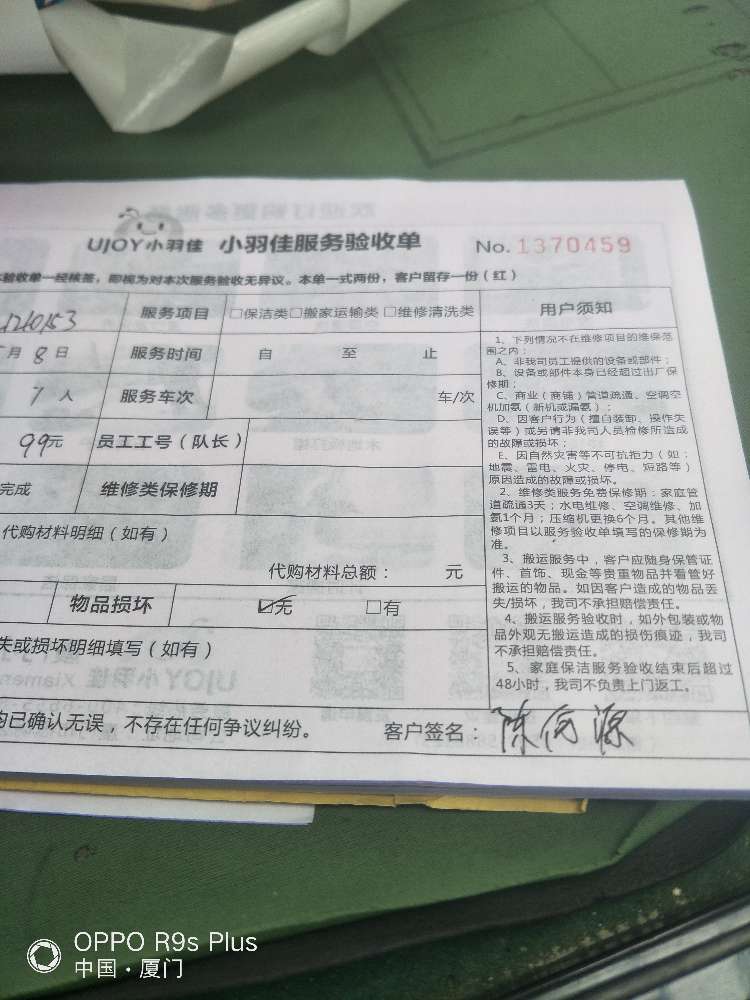 UJOY小羽佳 小羽佳服务验收单 No. 1370459
验收单一经核签，即视为对本次服务验收无异议。本单一式两份，客户留存一份（红）
服务项目 □保洁类□搬家运输类 □维修清洗类
月8日 服务时间 自 至 止
7人 服务车次 车/次
99元 员工工号（队长）
完成 维修类保修期
代购材料明细（如有）
代购材料总额： 元
物品损坏 ☑无 □有
失或损坏明细填写（如有）
均已确认无误，不存在任何争议纠纷。 客户签名：
用户须知
1、下列情况不在维修项目的维保范
围之内：
A、非我司员工提供的设备或部件；
B、设备或部件本身已经超过出厂保
修期；
C、商业（商铺）管道疏通、空调空
机加氨（新机或漏氨）；
D、因客户行为（擅自装卸、操作失
误等）或另请非我司人员检修所造成
的故障或损坏；
E、因自然灾害等不可抗拒力（如：
地震、雷电、火灾、停电、短路等）
原因造成的故障或损坏。
2、维修类服务免费保修期：家庭管
道疏通3天；水电维修、空调维修、加
氨1个月；压缩机更换6个月。其他维
修项目以服务验收单填写的保修期为
准。
3、搬运服务中，客户应随身保管证
件、首饰、现金等贵重物品并看管好
搬运的物品。如因客户造成的物品丢
失/损坏，我司不承担赔偿责任。
4、搬运服务验收时，如外包装或物
品外观无搬运造成的损伤痕迹，我司
不承担赔偿责任。
5、家庭保洁服务验收结束后超过
48小时，我司不负责上门返工。
OPPO R9s Plus
中国·厦门